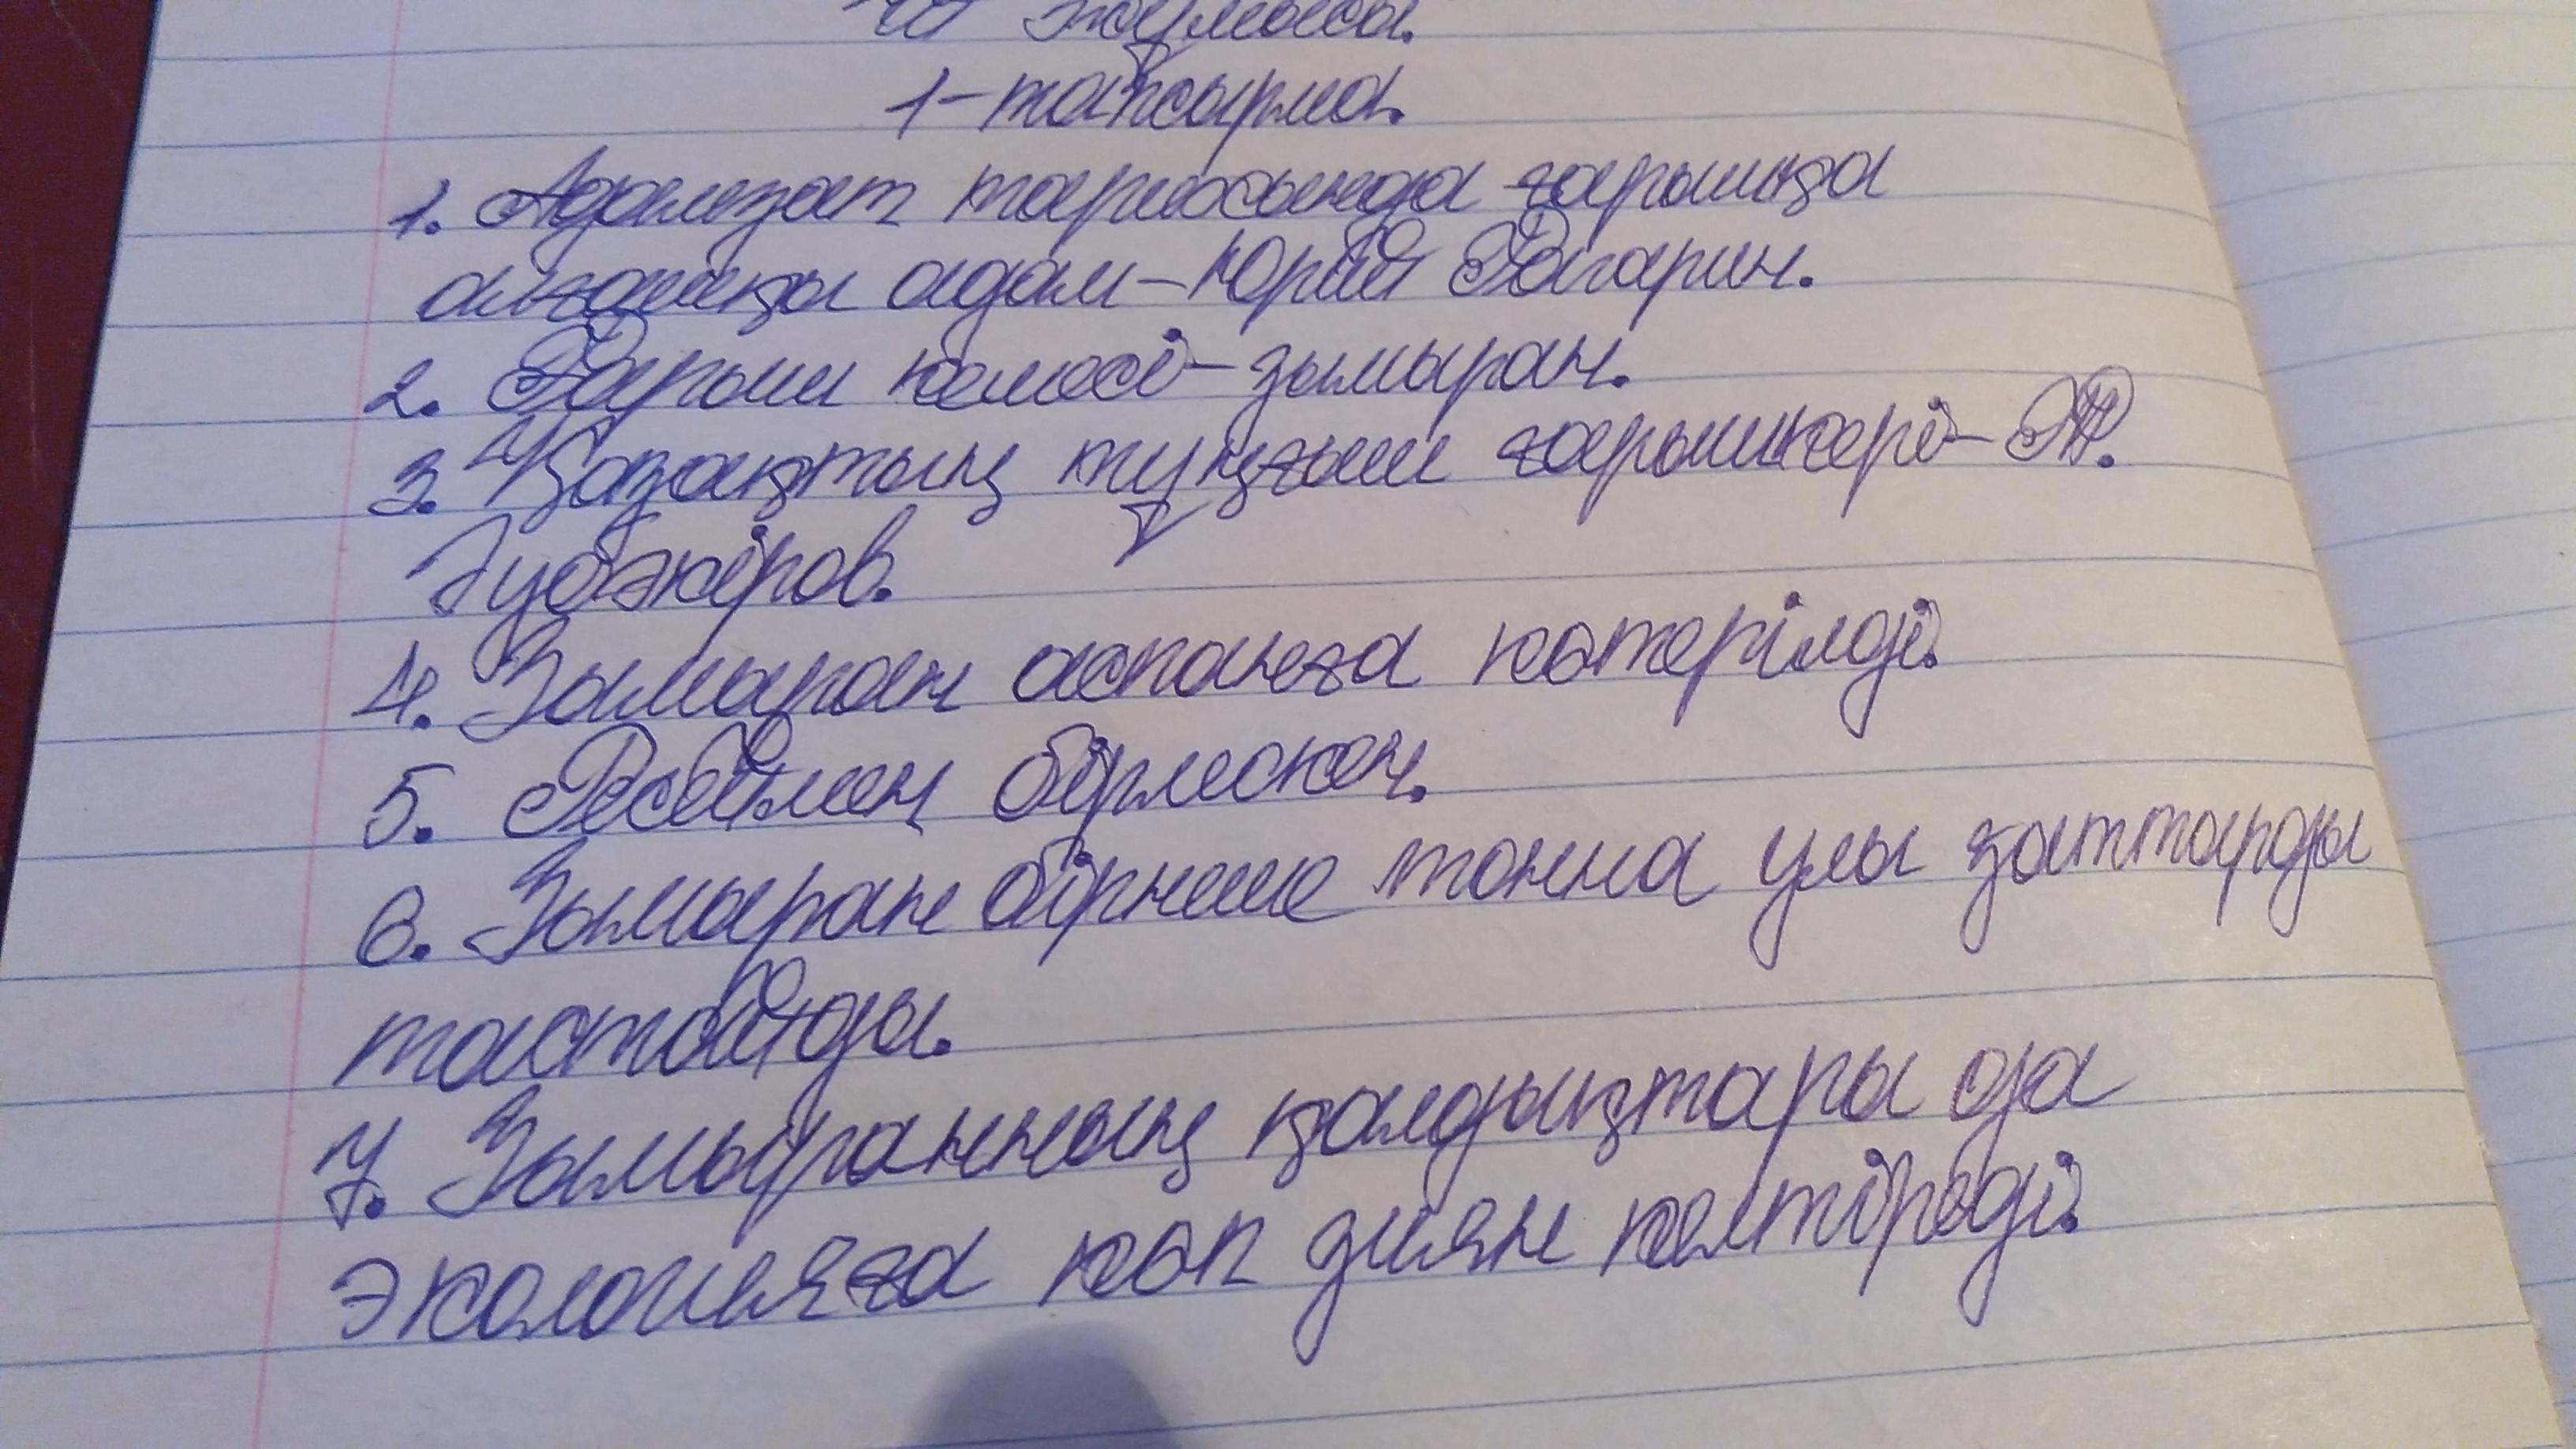 жұмысы.
1-тапсырма.
1. Адамзат тарихында ғарышқа
алғашқы адам-Юрий Гагарин.
2. Ғарыш кемесі-зымыран.
3. Қазақтың тұңғыш ғарышкері-Т.
Әубәкіров.
4. Зымыран аспанға көтерілді.
5. Ресеймен бірлескен.
6. Зымыран бірнеше тонна улы заттарды
тастайды.
7. Зымыранның қалдықтары да
экологияға көп зиян келтіреді.